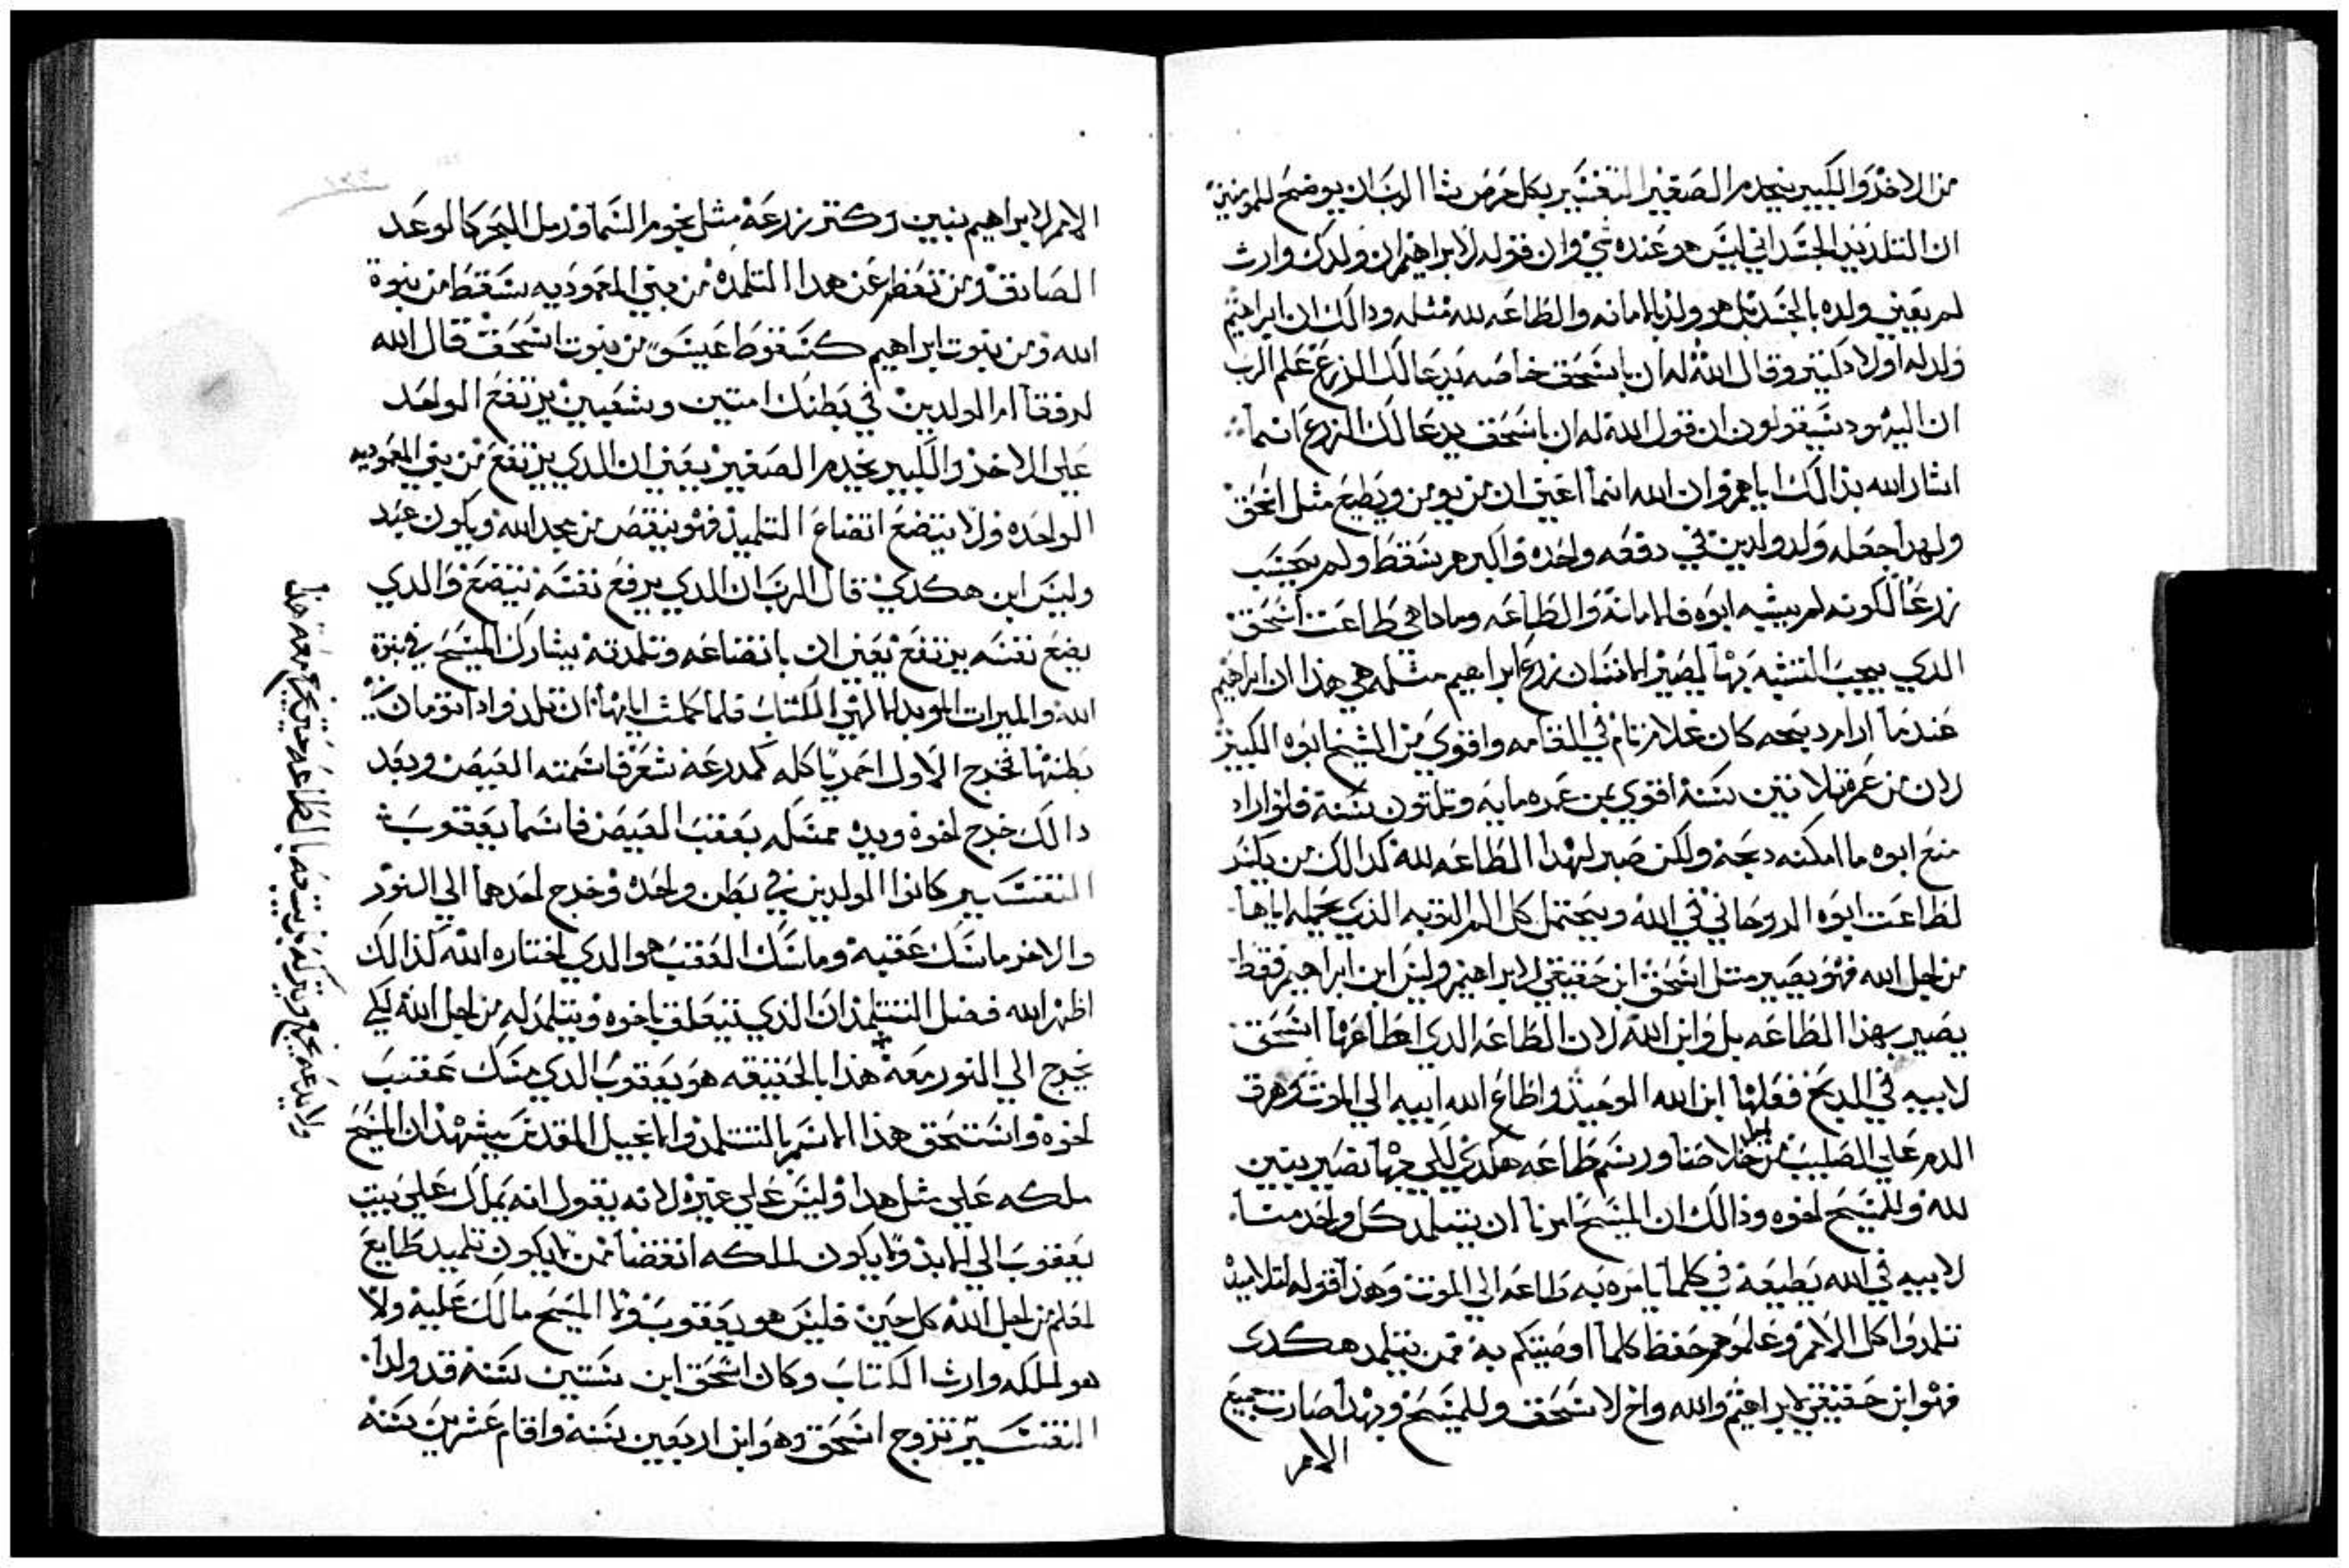 من الاخر والكبير يخدم الصغير التفسير بكل حرص شا الرب ان يوضح للمومنين
ان التلد الجسداني ليس هو عنده شي وان قوله لابراهيم ان ولدك وارث
لم يعني ولده بالجسد بل هو ولد بالامانه والطاعه لله مثله ودالك ان ابراهيم
ولد له اولاد كتير وقال الله له ان باسحق خاصه يدعا لك الزرع علم الرب
ان اليهود سيقولون ان قول الله له ان باسحق يدعا لك الزرع انما
اشار الله بذالك اياهم وان الله انما اعني ان من يومن ويطيع مثل اسحق
ولهدا جعله ولد ولدين في دفعه واحده واكبرهم سقط ولم يحسب
زرعا لكونه لم يشبه ابوه في الامانه والطاعه وماداهي طاعت اسحق
الدي يجب التشبه بها ليصير الانسان زرع ابراهيم مثله هي هذا ان ابراهيم
عندما اراد دبحه كان غلام تام في القامه واقوي من الشيخ ابوه الكبير
لان من عمره تلاتين سنة اقوي ممن عمره مايه وتلتون سنة فلو اراد
منع ابوه ما امكنه دبحه ولكن صبر لهدا الطاعه لله كدالك من
لطاعت ابوه الروحاني في الله ويحتمل كل الم التوبه الذي يحمله اياها
من اجل الله فهو يصير متل اسحق ابن حقيقي لابراهيم وليس ابن ابراهيم فقط
يصير بهذا الطاعه بل وابن الله لان الطاعه الدي اطاعها اسحق
لابيه في الدبح فعلها ابن الله الوحيد واطاع الله ابيه الي الموت وهرق
الدم علي الصليب من اجل خلاصنا ورسم طاعه هكدي لكي بها نصير بنين
لله وللمسيح اخوه وذالك ان المسيح امرنا ان يتتلمد كل واحد منا
لابيه في الله يطيعه في كلما يامره به طاعه الي الموت وهذا قوله لتلاميذ
تلمدوا كل الامم وعلموهم حفظ كلما اوصيتكم به فمن يتلمد هكدي
فهو ابن حقيقي لابراهيم والله واخ لاسحق وللمسيح وبهدا صارت جميع
الامم
الامم لابراهيم بنين وكتر زرعه مثل نجوم السما ورمل البحر كالوعد
الصادق ومن تعظم عن هدا التلمده من بني المعموديه سقط من بنوة
الله ومن بنوت ابراهيم كسقوط عيسو من بنوت اسحق قال الله
لرفقا ام الولدين في بطنك امتين وشعبين يرتفع الواحد
علي الاخر والكبير يخدم الصغير يعني ان الدي يرتفع من بني المعموديه
الواحده ولا يتضع اتضاع التلميذ فهو ينقص من مجد الله ويكون عبد
وليس ابن هكدي قال الرب ان الدي يرفع نفسه يتضع والدي
يضع نفسه يرتفع يعني ان باتضاعه وتلمدته يشارك المسيح في بنوة
الله والميرات الموبد الالهي الكتاب فلما كملت ايامها ان تلد واد اتومان في
بطنها فخرج الاول احمر يا كله كمدرعة شعر فاسمته العيص وبعد
دالك خرج اخوه ويده ممسكه بعقب العيص فاسما يعقوب
التفسير كانوا الولدين في بطن واحده وخرج احدهما الي النور
والاخر ماسك عقبه وماسك العقب هو الدي اختاره الله كذالك
اظهر الله فضل التتلمذ ان الذي يتعلق باخوه ويتتلمد له من اجل الله لكي
يخرج الي النور معه هذا بالحقيقه هو يعقوب الدي مسك بعقب
اخوه واستحق هذا الاسم بالتتلمد والانجيل المقدس يشهد ان المسيح
ملكه علي مثل هدا وليس علي غيره لانه يقول انه يملك علي بيت
يعقوب الي الابد ولا يكون لملكه انقضا فمن لا يكون تلميد طايع
لمعلم من اجل الله كل حين فليس هو يعقوب ولا المسيح مالك عليه ولا
هو لملكه وارث الكتاب وكان اسحق ابن ستين سنه قد ولدا
التفسير تزوج اسحق وهو ابن اربعين سنه واقام عشرين سنه